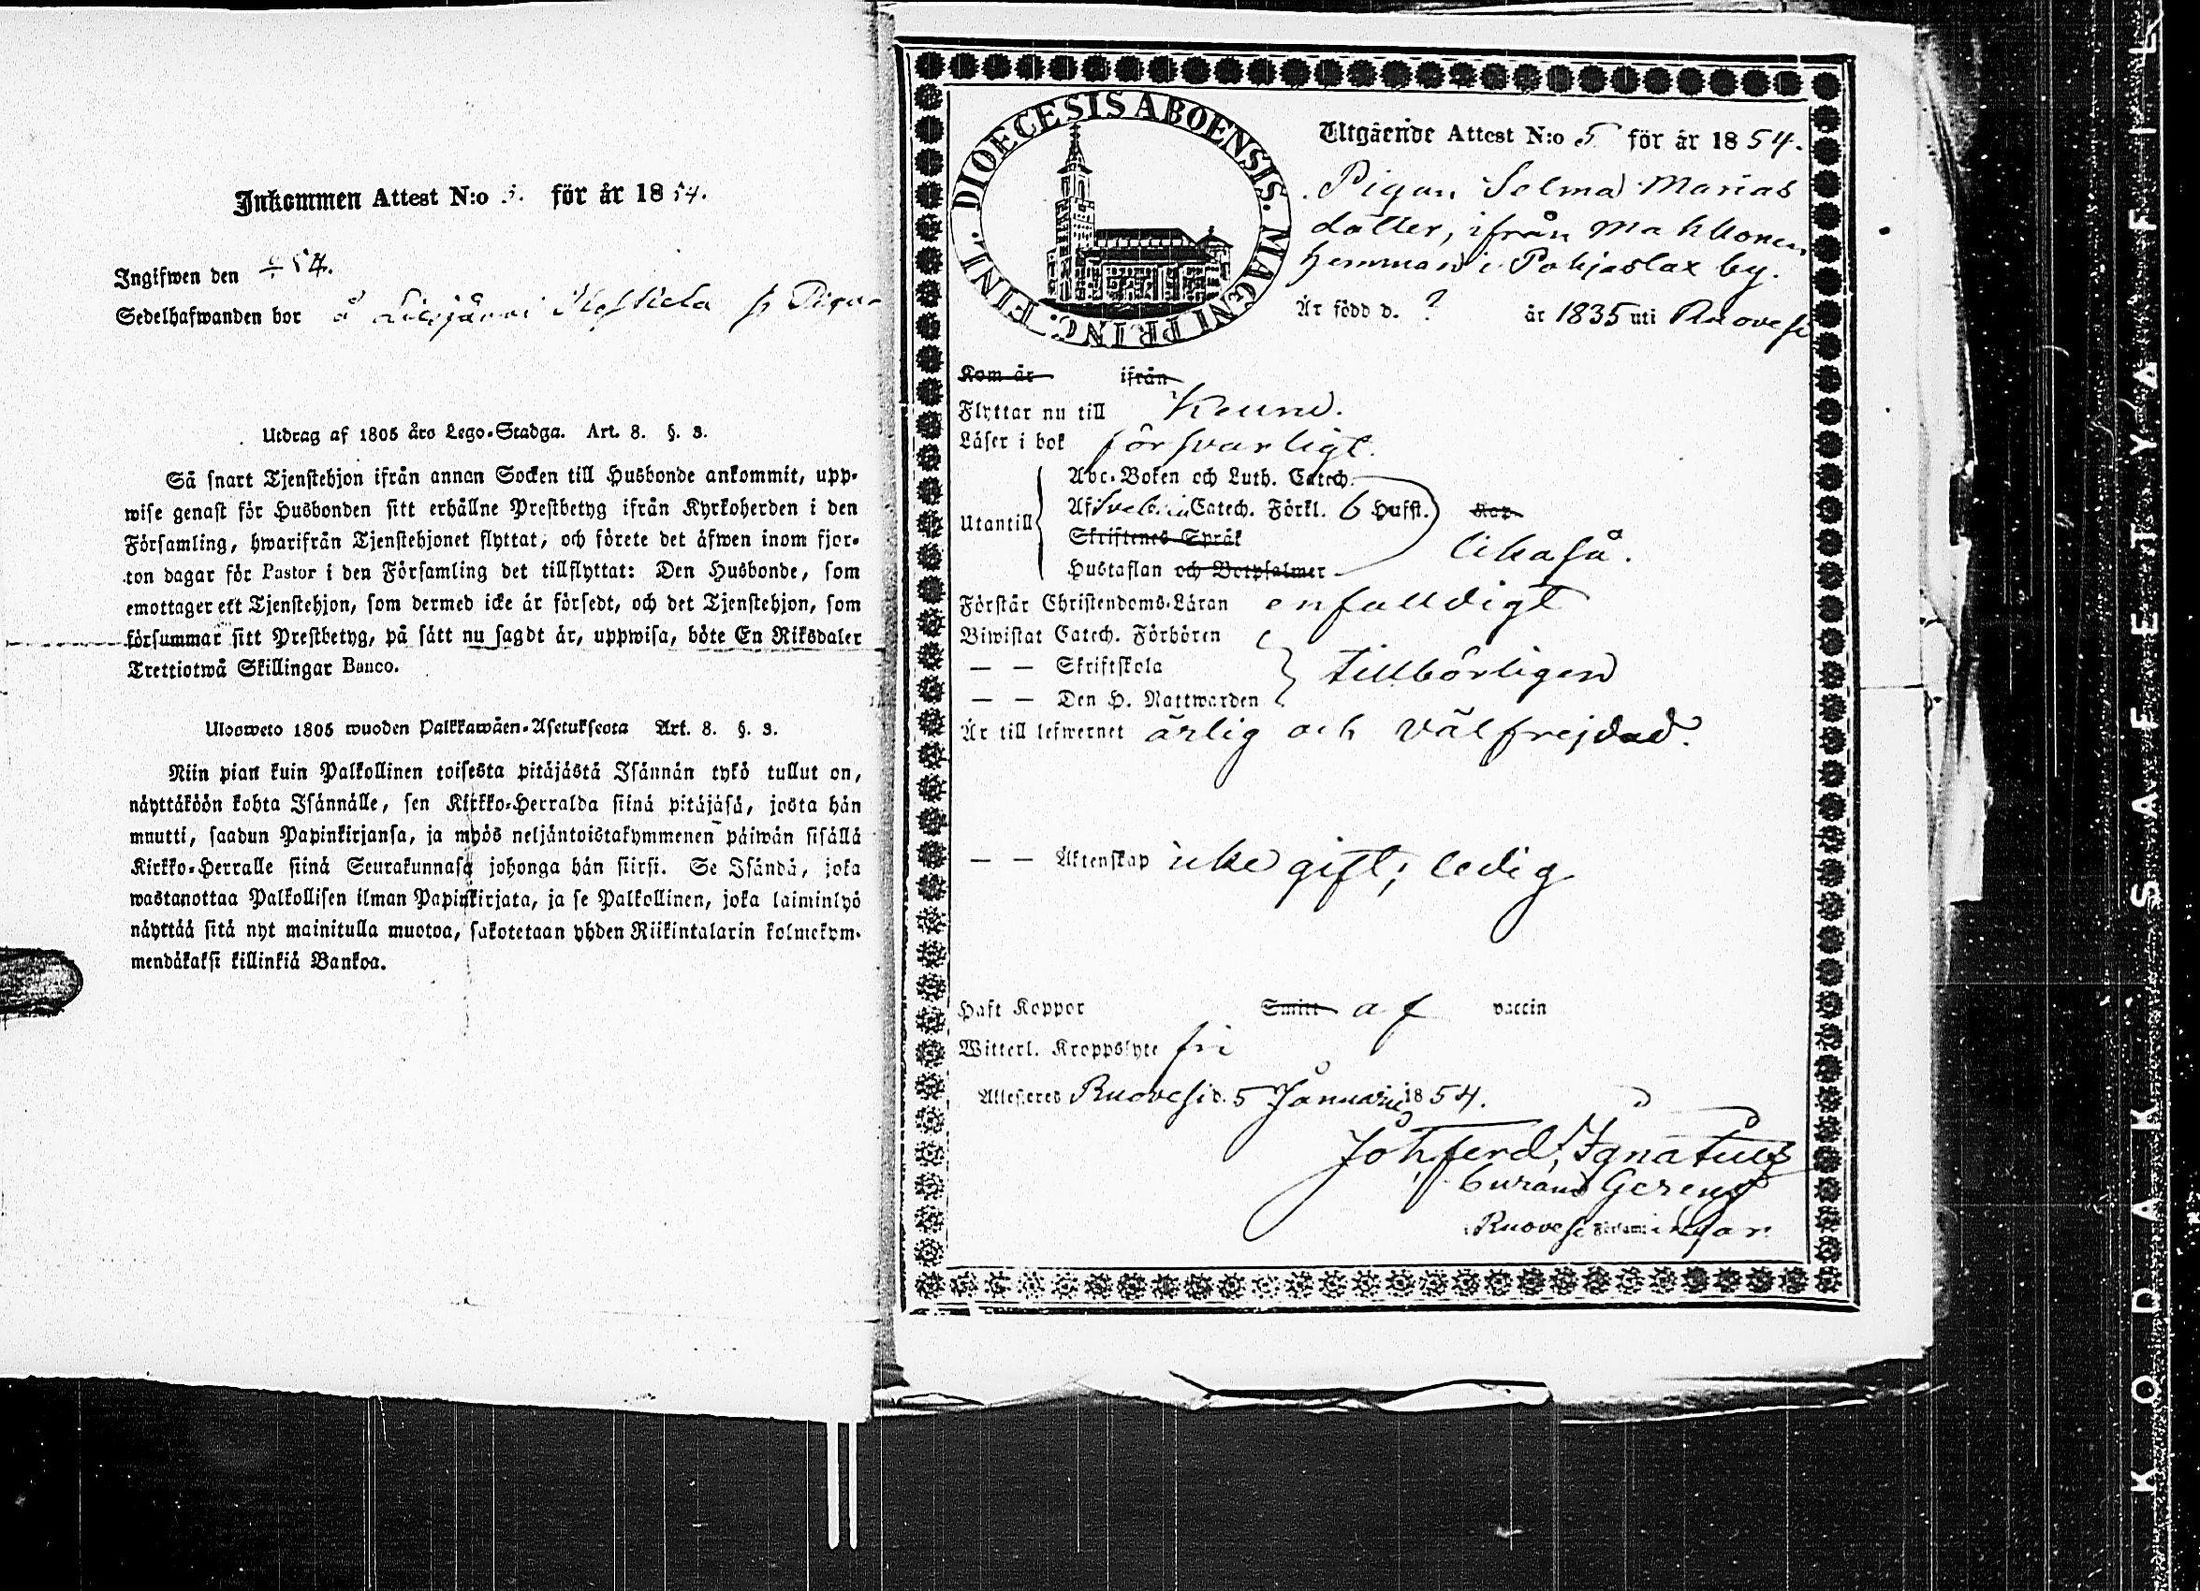 Inkommen Attest N:o 5. för år 1854.
Ingifwen den 54.
Sedelhafwanden bor å
Utdrag af 1805 års Lego-Stadga. Art. 8. §. 3.
Så snart Tjenstehjon ifrån annan Socken till Husbonde ankommit, upp-
wise genast för Husbonden sitt erhållne Prestbetyg ifrån Kyrkoherden i den
Församling, hwarifrån Tjenstehjonet flyttat, och förete det äfwen inom fjor-
ton dagar för Pastor i den Församling det tillflyttat: Den Husbonde, som
emottager ett Tjenstehjon, som dermed icke är försedt, och det Tjenstehjon, som
försummar sitt Prestbetyg, på sätt nu sagdt är, uppwisa, böte En Riksdaler
Trettiotwå Skillingar Banco.
Ulosweto 1805 wuoden Palkkawäen-Asetuksesta Art. 8. §. 3.
Niin pian kuin Palkollinen toisesta pitäjästä Isännän tykö tullut on,
näyttäköön kohta Isännälle, sen Kirkko-Herralda siinä pitäjäsä, josta hän
muutti, saadun Papinkirjansa, ja myös neljäntoistakymmenen päiwän sisällä
Kirkko-Herralle siinä Seurakunnasa johonga hän siirsi. Se Isändä, joka
wastanottaa Palkollisen ilman Papinkirjata, ja se Palkollinen, joka laiminlyö
näyttää sitä nyt mainitulla muotoa, sakotetaan yhden Riikintalarin kolmekym-
mendäkaksi killinkiä Bankoa.
DIOECESIS ABOENSIS. MAGNI PRINC. FINL.
Utgående Attest N:o 5 för år 1854.
Pigan Selma Marias
dotter, ifrån
hemman i Pohjaslax by.
Är född d. ? år 1835 uti Ruovesi
Kom år ifrån
Flyttar nu till Keuru.
Läser i bok försvarligt.
Abc-Boken och Luth. Catech.
Utantill Af Svebilii Catech. Förkl. 6 Hufst. Kap.
Skriftenes Språk likaså.
Hustaflan och Botpsalmer
Förstår Christendoms-Läran enfaldigt
Biwistat Catech. Förhören
— — Skriftskola tillbörligen
— — Den H. Nattwarden
Är till lefwernet ärlig och välfrejdad.
— — Äktenskap icke gift; ledig
Haft Koppor Smitt af vaccin
Witterl. Kroppslyte fri
Attesteras Ruovesi d. 5 Januarii 1854.
Joh. Ferd. Ignatius
Curam Gerens
i Ruovesi Församlingar.
KODAK SAFETY FIL